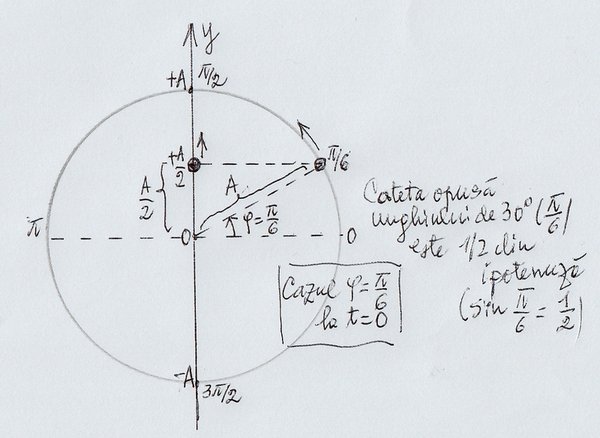 y
+A
π/2
+A/2
π/6
A/2
A
φ=π/6
π
0
0
Cateta opusă
unghiului de 30° (π/6)
este 1/2 din
ipotenuză
(sin π/6 = 1/2)
Cazul φ=π/6
la t=0
-A
3π/2